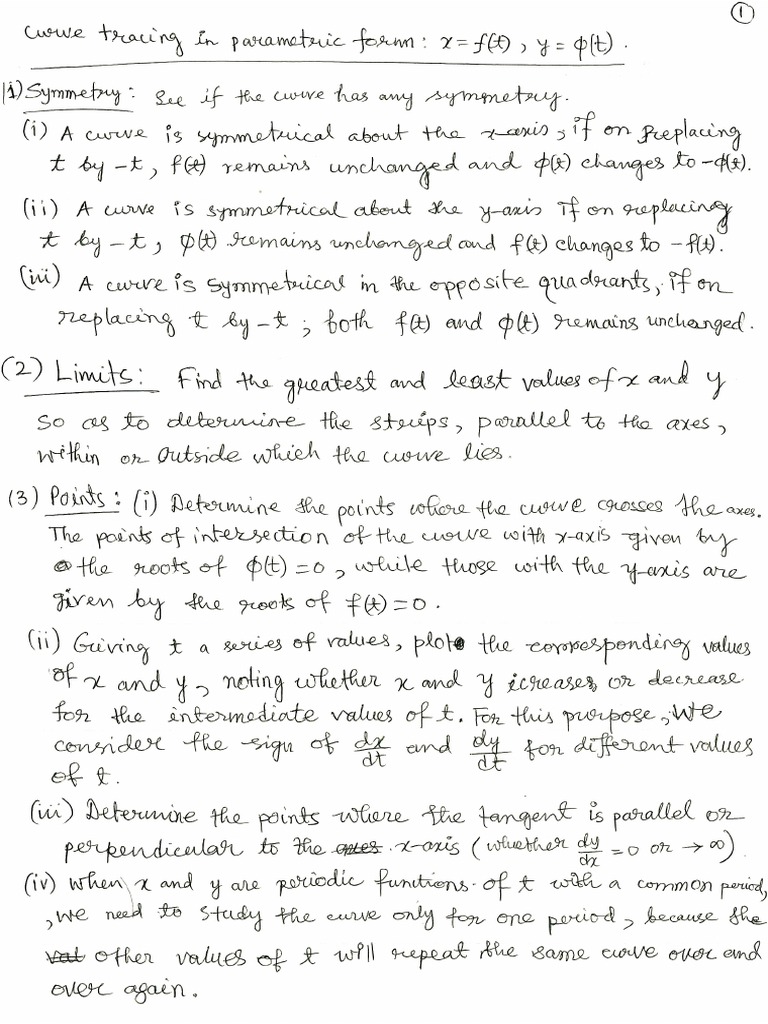 ①
Curve tracing in parametric form: x = f(t), y = φ(t).
1) Symmetry: See if the curve has any symmetry.
(i) A curve is symmetrical about the x-axis, if on replacing
t by -t, f(t) remains unchanged and φ(t) changes to -φ(t).
(ii) A curve is symmetrical about the y-axis if on replacing
t by -t, φ(t) remains unchanged and f(t) changes to -f(t).
(iii) A curve is symmetrical in the opposite quadrants, if on
replacing t by -t, both f(t) and φ(t) remains unchanged.
(2) Limits: Find the greatest and least values of x and y
so as to determine the strips, parallel to the axes,
within or outside which the curve lies.
(3) Points: (i) Determine the points where the curve crosses the axes.
The points of intersection of the curve with x-axis given by
the roots of φ(t) = 0, while those with the y-axis are
given by the roots of f(t) = 0.
(ii) Giving t a series of values, plot the corresponding values
of x and y, noting whether x and y icreases or decrease
for the intermediate values of t. For this purpose, we
consider the sign of dx/dt and dy/dt for different values
of t.
(iii) Determine the points where the tangent is parallel or
perpendicular to the x-axis (whether dy/dx = 0 or → ∞)
(iv) When x and y are periodic functions of t with a common period,
, we need to study the curve only for one period, because the
other values of t will repeat the same curve over and
over again.